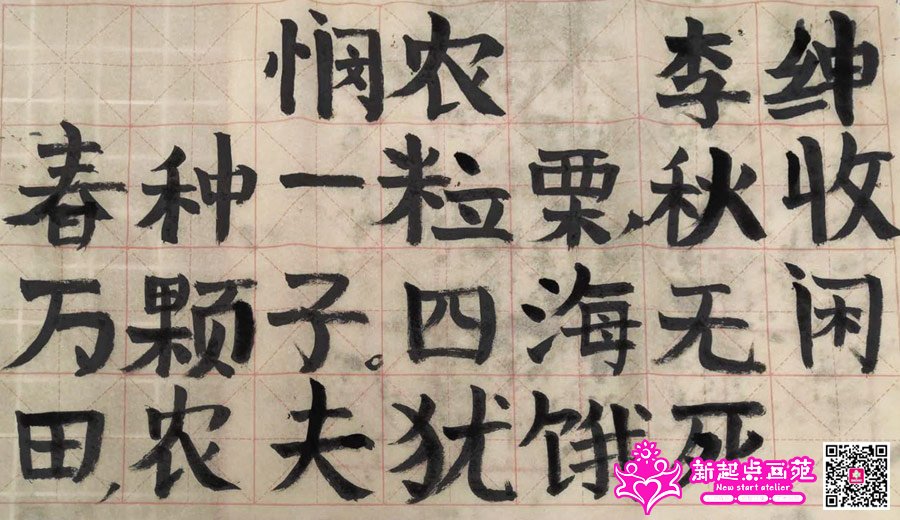 悯农 李绅
春种一粒栗,秋收
万颗子。四海无闲
田,农夫犹饿死
新起点画苑
New start atelier